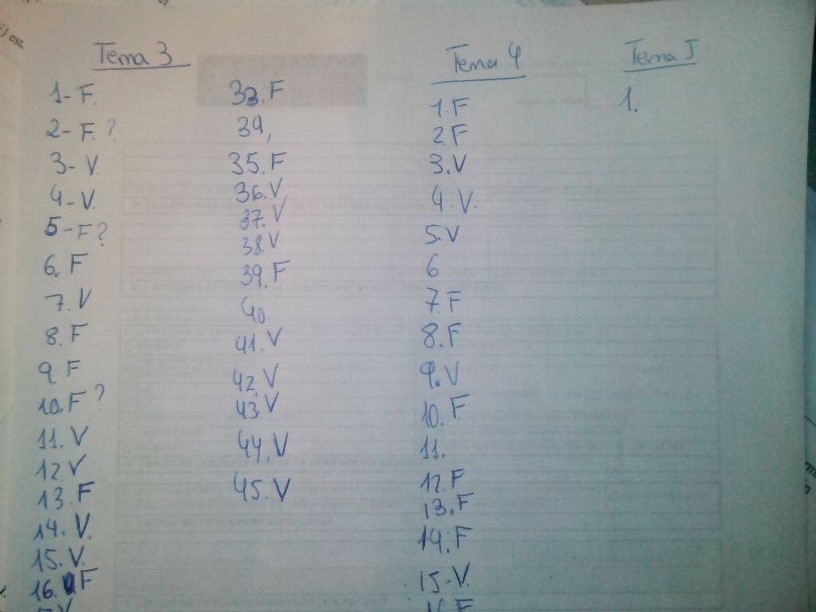 Tema 3
1- F.
2- F.?
3- V
4- V.
5- F?
6. F
7. V
8. F
9. F
10. F?
11. V
12 V
13. F
14. V.
15. V.
16. F
33. F
34,
35. F
36. V
37. V
38. V
39. F
40.
41. V
42. V
43 V
44. V
45. V
Tema 4
1. F
2 F
3. V
4. V.
5. V
6
7. F
8. F
9. V
10. F
11.
12. F
13. F
14. F
15- V.
16. F
Tema 5
1.